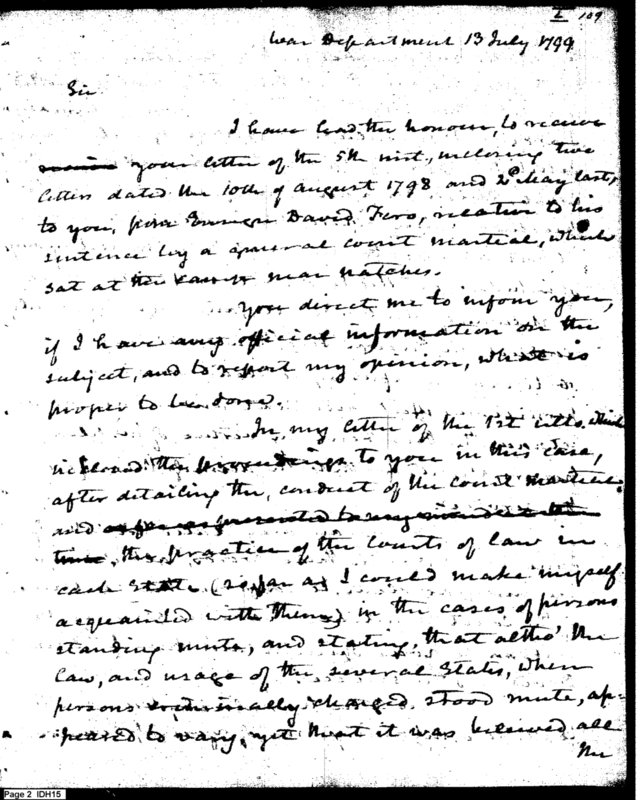 2 109
War Department 13 July 1799
Sir
I have had the honour, to receive
your letter of the 5th inst, inclosing two
letters dated the 10th of August 1798 and 2d May last,
to you, from Ensign David Fero, relative to his
sentence by a general court martial, which
sat at the camp near natches.
You direct me to inform you,
if I have any official information on the
subject, and to report my opinion, what is
proper to be done.
In my letter of the 1st ulto. which
inclosed the proceedings to you in this case,
after detailing the, conduct of the court martial,
and
the practice of the Courts of law in
each State (so far as I could make myself
acquainted with them) in the cases of persons
standing mute, and stating, that altho' the
law, and usage of the several States, when
persons criminally charged stood mute, ap-
peared to vary, yet that it was believed all
the
Page 2 IDH15